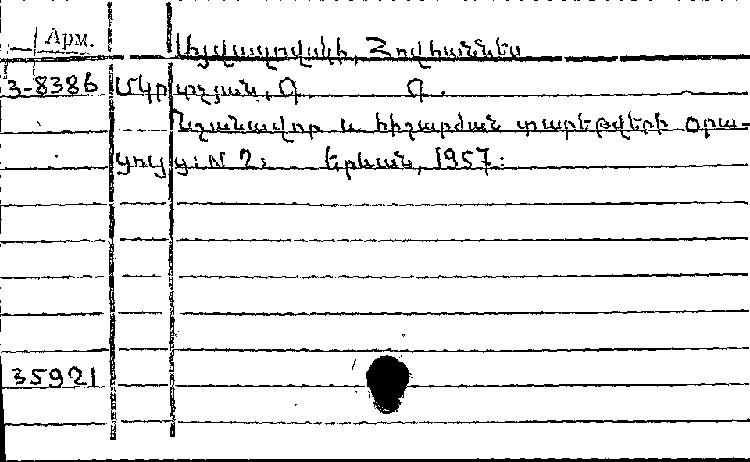 Арм.
Այվազովսկի, Հովհաննես
3-8386 Մկրտչյան, Գ. Գ.
Նշանավոր և հիշարժան տարեթվերի օրա-
ցույց: N 2: Երևան, 1957:
35921